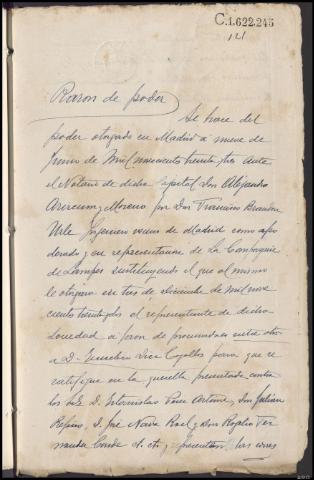 C.1.622.245
121
Razon de poder
Se hace del
poder otorgado en Madrid a nueve de
Junio de Mil novecientos treinta y tres ante
el Notario de dicha Capital Don Alejandro
y Moreno por Don Francisco Brandon
Ingeniero vecino de Madrid como apo
derado y en representacion de La Compagnie
de Lampes sustituyendo el que al mismo
le otorgara en tres de Diciembre de mil nove
cientos treinta y dos el representante de dicha
Sociedad a favor de procuradores entre otro
a D. para que se
ratifique en la querella presentada contra
los D. Estanislao Don Julian
D. José y Don Rogelio Fer
nandez Conde y